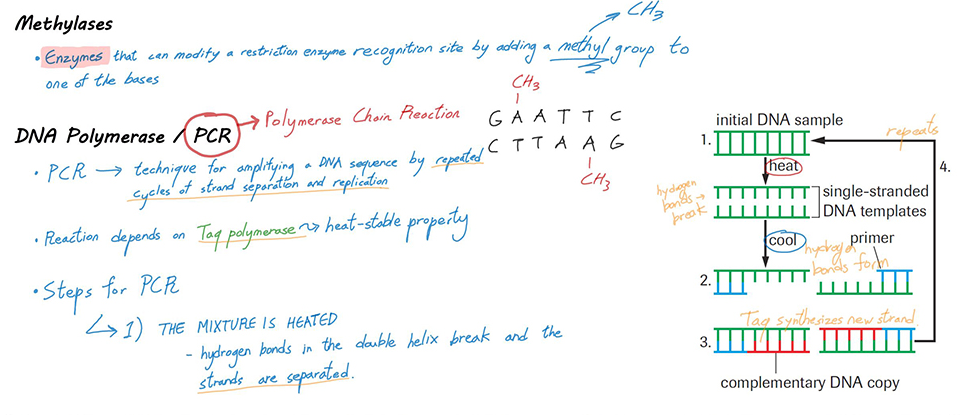 Methylases
CH3
• Enzymes that can modify a restriction enzyme recognition site by adding a methyl group to
one of the bases
CH3
GAATTC
CTTAAG
CH3
DNA Polymerase / PCR → Polymerase Chain Reaction
• PCR → technique for amplifying a DNA sequence by repeated
cycles of strand separation and replication
• Reaction depends on Taq polymerase → heat-stable property
• Steps for PCR
1) THE MIXTURE IS HEATED
- hydrogen bonds in the double helix break and the
strands are separated.
initial DNA sample
repeats
1.
4.
heat
hydrogen
bonds →
break
single-stranded
DNA templates
cool
primer
hydrogen
bonds form
2.
Taq synthesizes new strand
3.
complementary DNA copy